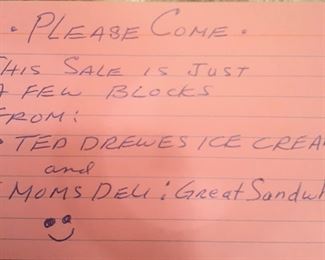 • PLEASE COME •
THIS SALE IS JUST
A FEW BLOCKS
FROM:
• TED DREWES ICE CREA
and
MOMS DELI : Great Sandw